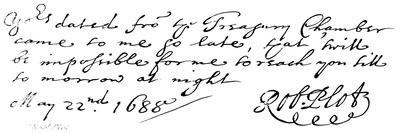 Yo.rs dated fro. ye Treasury Chamber
came to me so late, that twill
be impossible for me to reach you till
to morrow at night
May 22nd. 1688 Rob. Plot